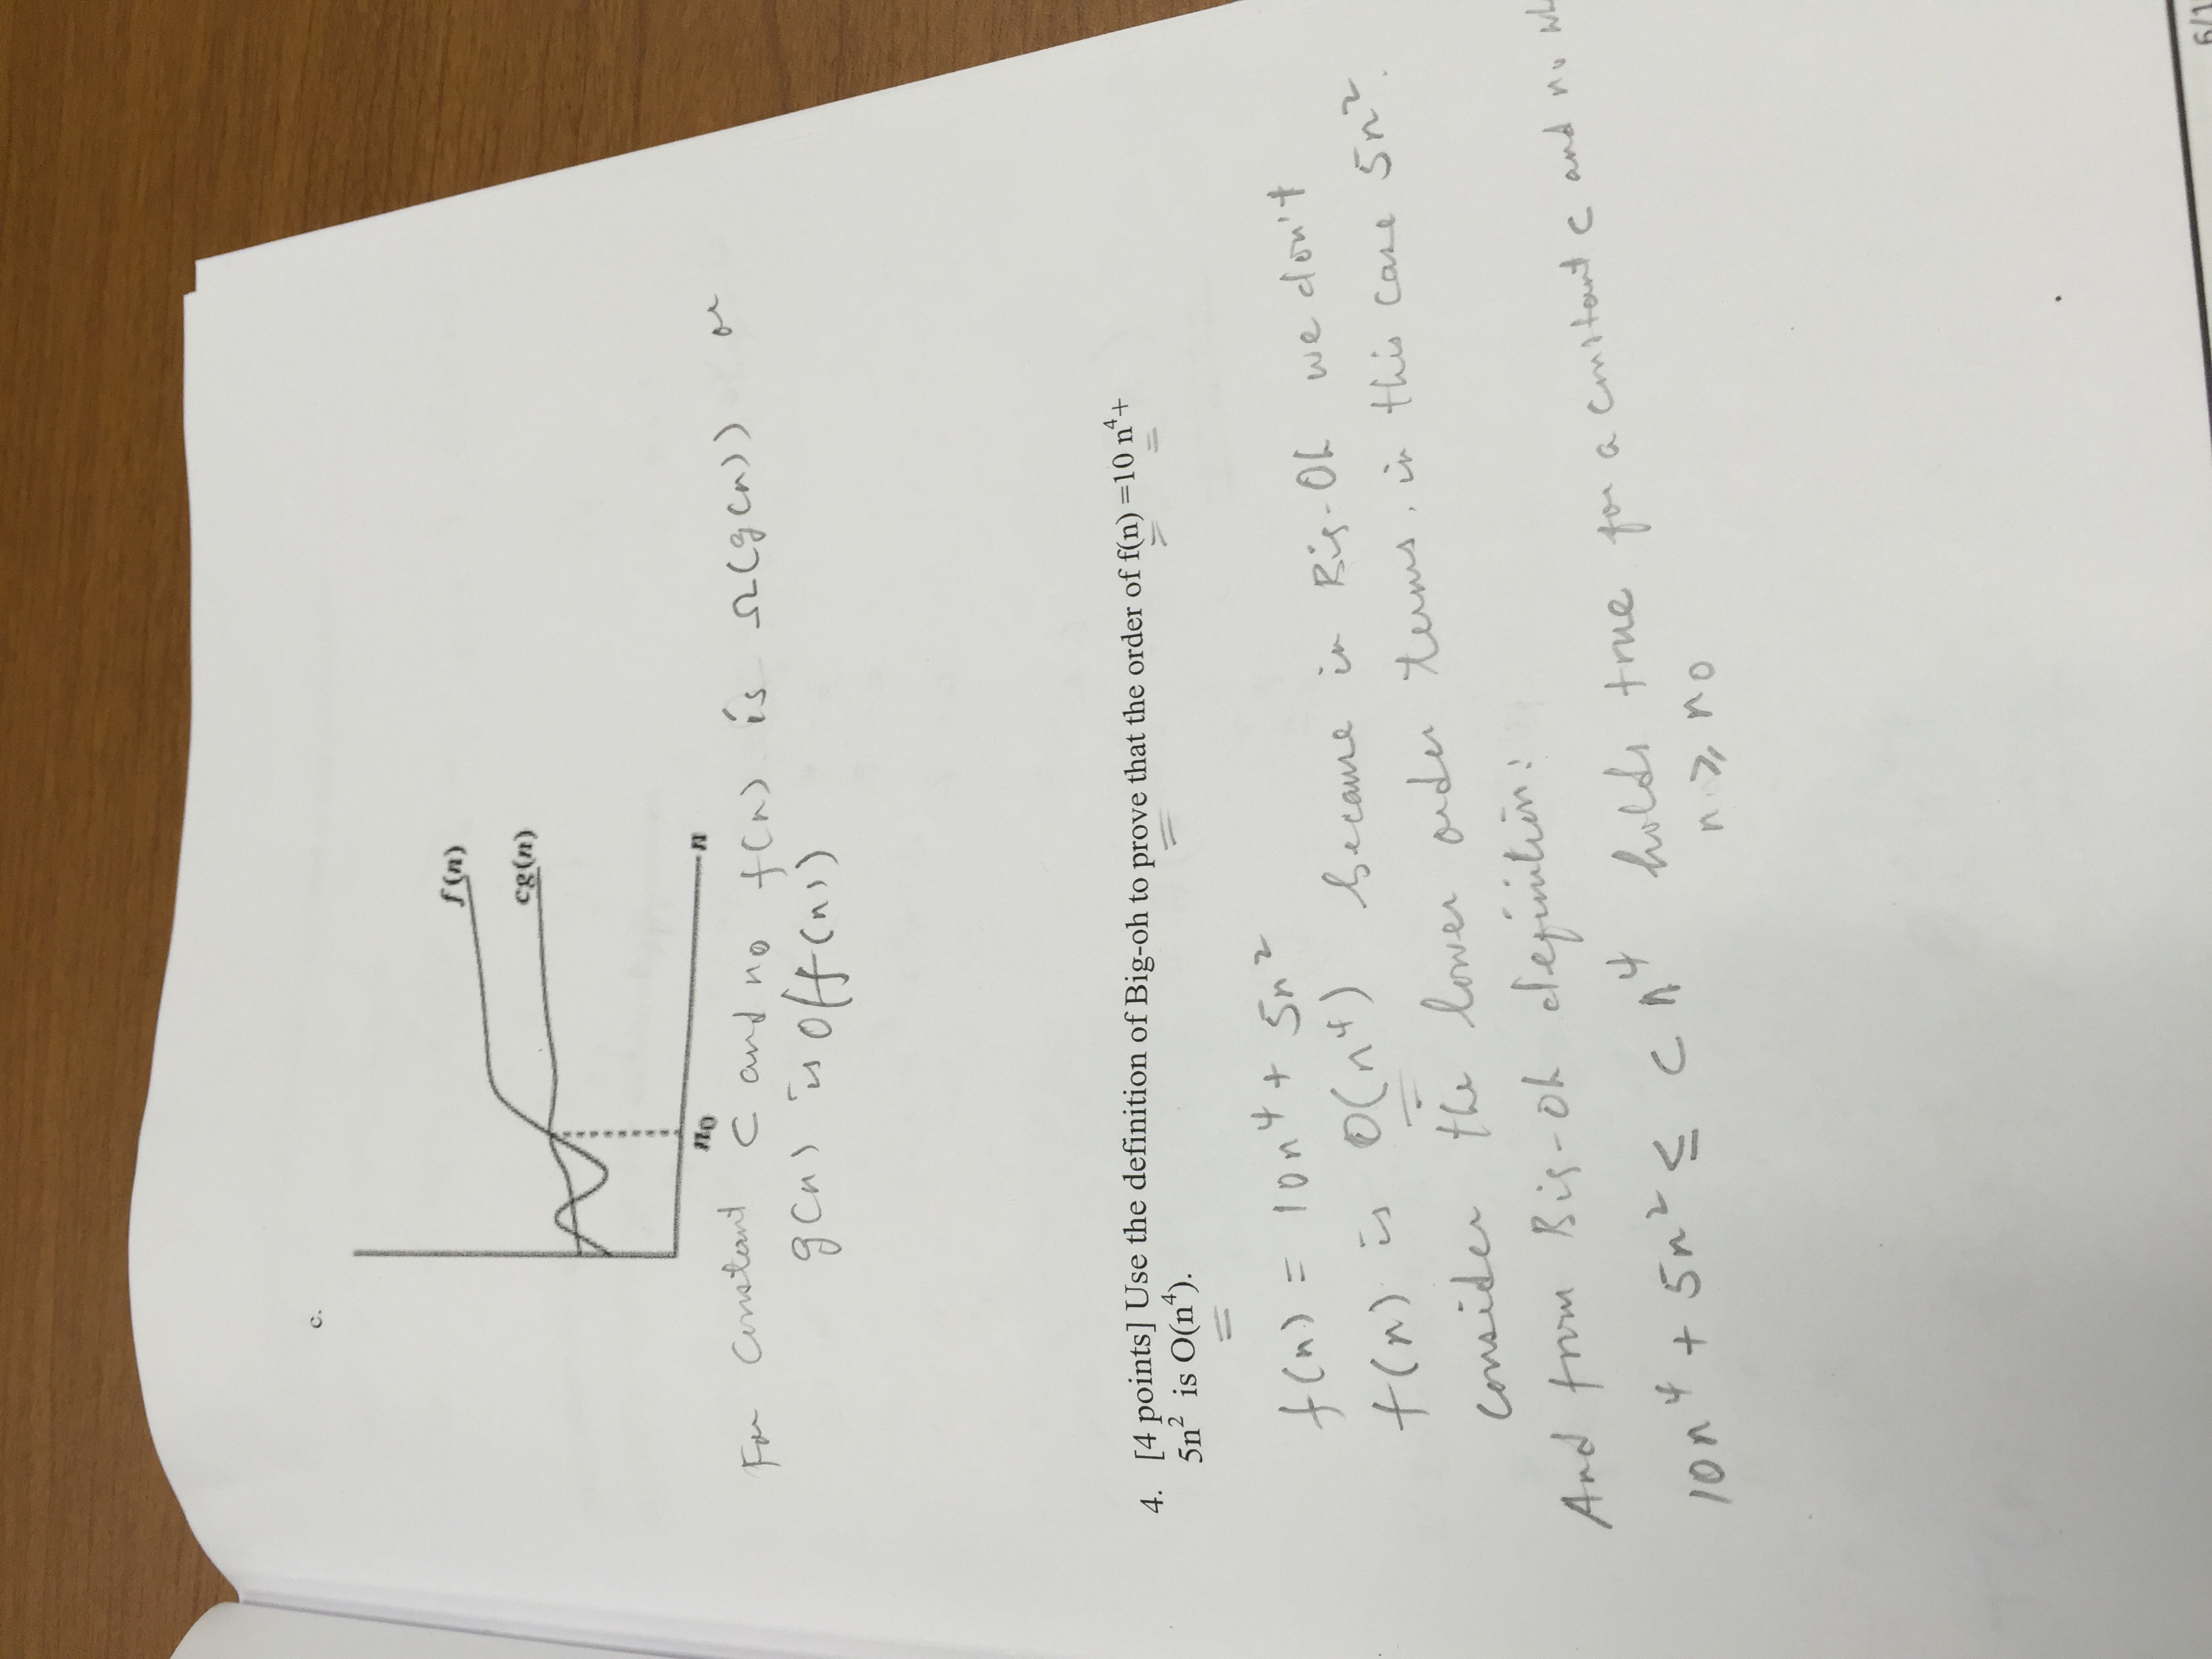 c.
f(n)
cg(n)
n₀
n
For constant c and n₀ f(n) is Ω(g(n)) or
g(n) is O(f(n))
4. [4 points] Use the definition of Big-oh to prove that the order of f(n) =10 n⁴+
5n² is O(n⁴).
f(n) = 10n⁴ + 5n²
f(n) is O(n⁴) because in Big-Oh we don't
consider the lower order terms, in this case 5n².
And from Big-Oh definition:
10n⁴ + 5n² ≤ c n⁴ holds true for a constant c and n₀
n ≥ n₀